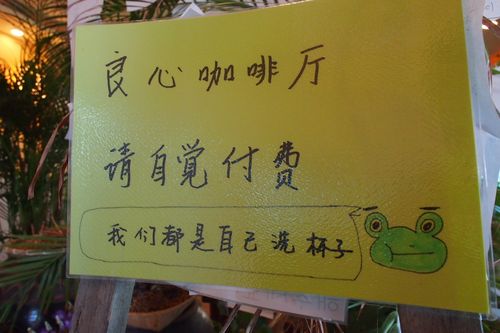 良心咖啡厅
请自觉付费
我们都是自己洗杯子